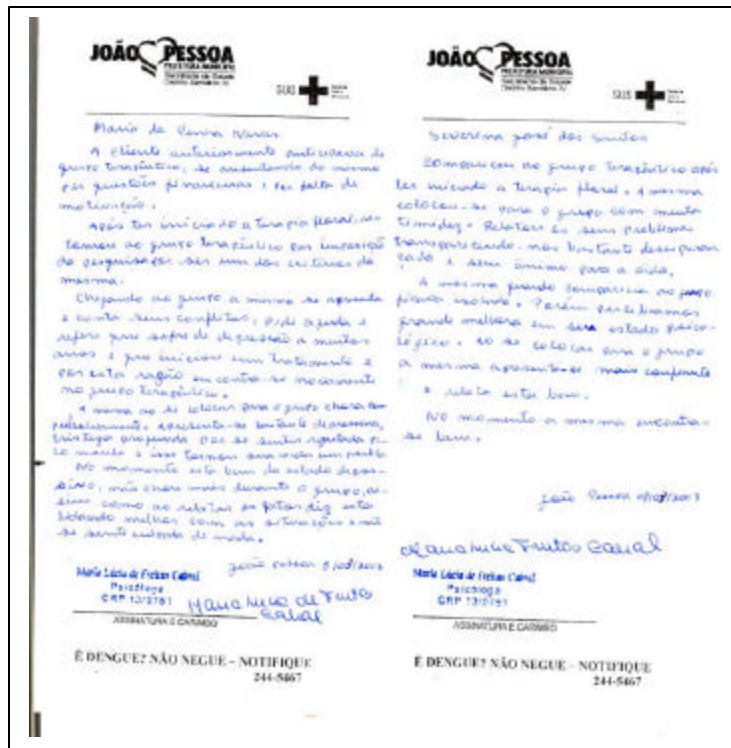 JOÃO PESSOA
PREFEITURA MUNICIPAL
Secretaria de Saúde
Distrito Sanitário IV
SUS
Maria da Penha
A cliente anteriormente participava do
grupo terapêutico, se ausentando do mesmo
por questões financeiras e por falta de
motivação.
Após ter iniciado a terapia floral, re-
tornou ao grupo terapêutico por imposição
da pesquisa por ser um dos critérios da
mesma.
Chegando ao grupo a mesma se apresenta
e conta seus conflitos, pede ajuda e
refere que sofre de depressão a muitos
anos e que iniciou um tratamento e
por esta razão encontra-se novamente
no grupo terapêutico.
A mesma ao se colocar para o grupo chora
apresenta-se bastante depressiva,
tristeza profunda por se sentir rejeitada pe-
lo marido e isso tornou sua vida um
No momento esta bem do estado depres-
sivo, não chora mais durante o grupo, as-
sim como ao relatar os fatos diz esta
lidando melhor com as situações e não
se sente
João Pessoa
Maria Lúcia de Freitas Cabral
Psicóloga
CRP 13/0761
Maria Lúcia de Freitas
Cabral
ASSINATURA E CARIMBO
É DENGUE? NÃO NEGUE – NOTIFIQUE
244-5467
JOÃO PESSOA
PREFEITURA MUNICIPAL
Secretaria de Saúde
Distrito Sanitário IV
SUS
Severina José dos Santos
Compareceu ao grupo terapêutico após
ter iniciado a terapia floral. A mesma
colocou-se para o grupo com muita
timidez. Relatou os seus problemas
transparecendo-nos bastante desesperan-
çada e sem ânimo para a vida.
A mesma quando comparecia ao grupo
ficava isolada. Porém percebíamos
grande melhora em seu estado psico-
lógico. Ao se colocar para o grupo
a mesma apresenta-se mais confiante
e relata estar bem.
No momento a mesma encontra-
se bem.
João Pessoa
Maria Lúcia Freitas Cabral
Maria Lúcia de Freitas Cabral
Psicóloga
CRP 13/0761
ASSINATURA E CARIMBO
É DENGUE? NÃO NEGUE – NOTIFIQUE
244-5467